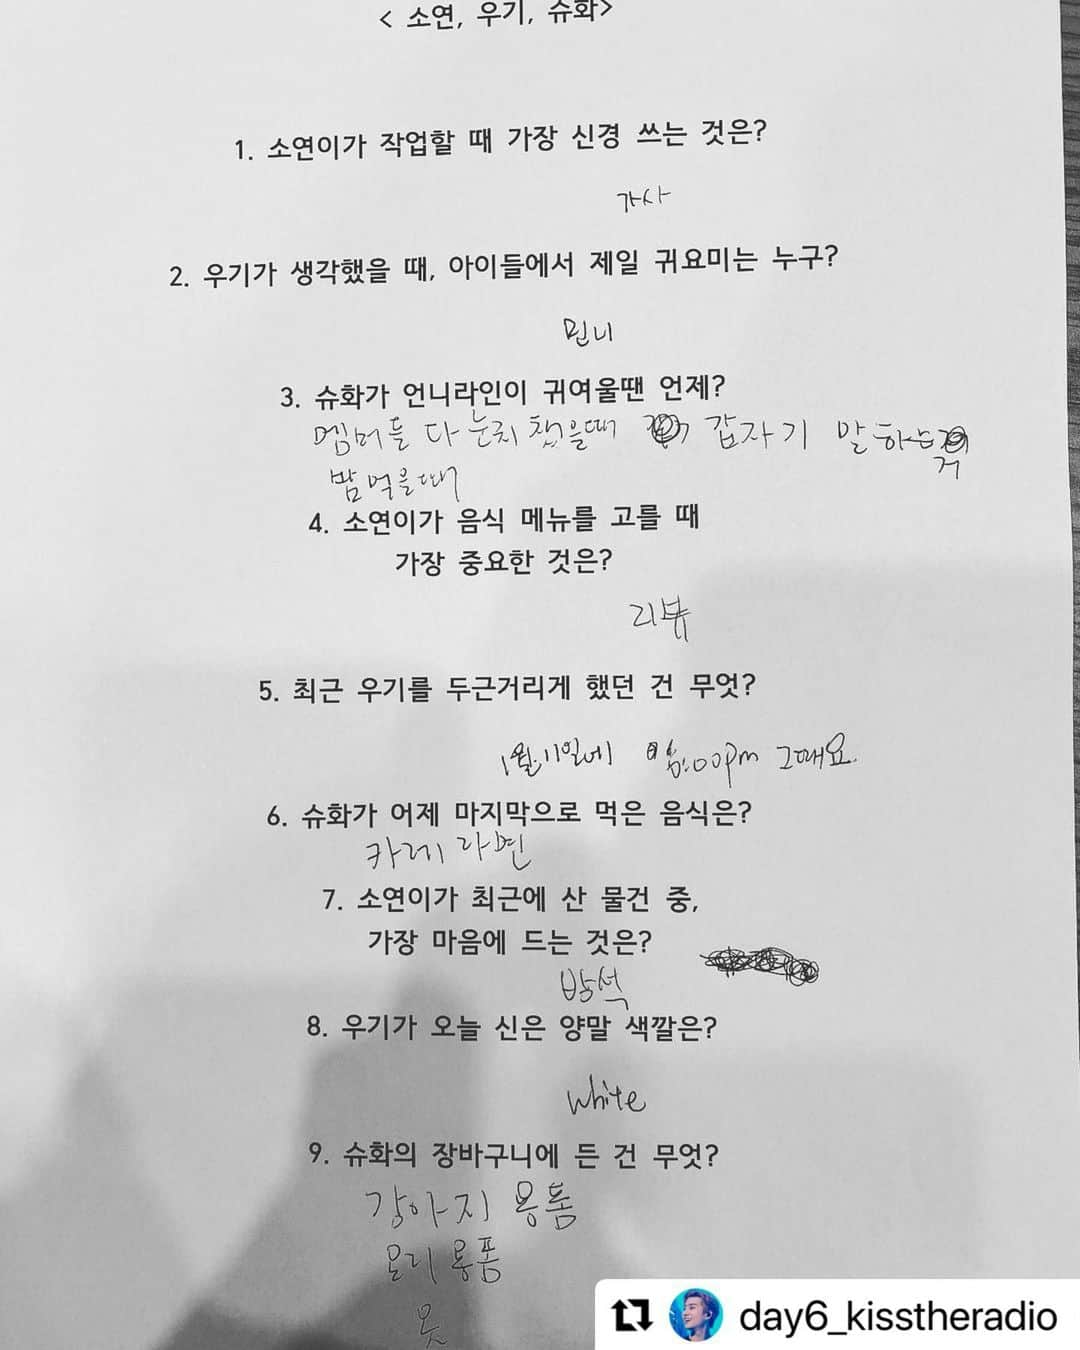 < 소연, 우기, 슈화>
1. 소연이가 작업할 때 가장 신경 쓰는 것은?
가사
2. 우기가 생각했을 때, 아이들에서 제일 귀요미는 누구?
민니
3. 슈화가 언니라인이 귀여울땐 언제?
멤버들 다 눈치 챘을때 갑자기 말하는 거
밥 먹을때
4. 소연이가 음식 메뉴를 고를 때
가장 중요한 것은?
리뷰
5. 최근 우기를 두근거리게 했던 건 무엇?
1월.11일에 6:00pm 그때요.
6. 슈화가 어제 마지막으로 먹은 음식은?
카레 라면
7. 소연이가 최근에 산 물건 중,
가장 마음에 드는 것은?
방석
8. 우기가 오늘 신은 양말 색깔은?
white
9. 슈화의 장바구니에 든 건 무엇?
강아지 용품
요리 용품
옷
day6_kisstheradio